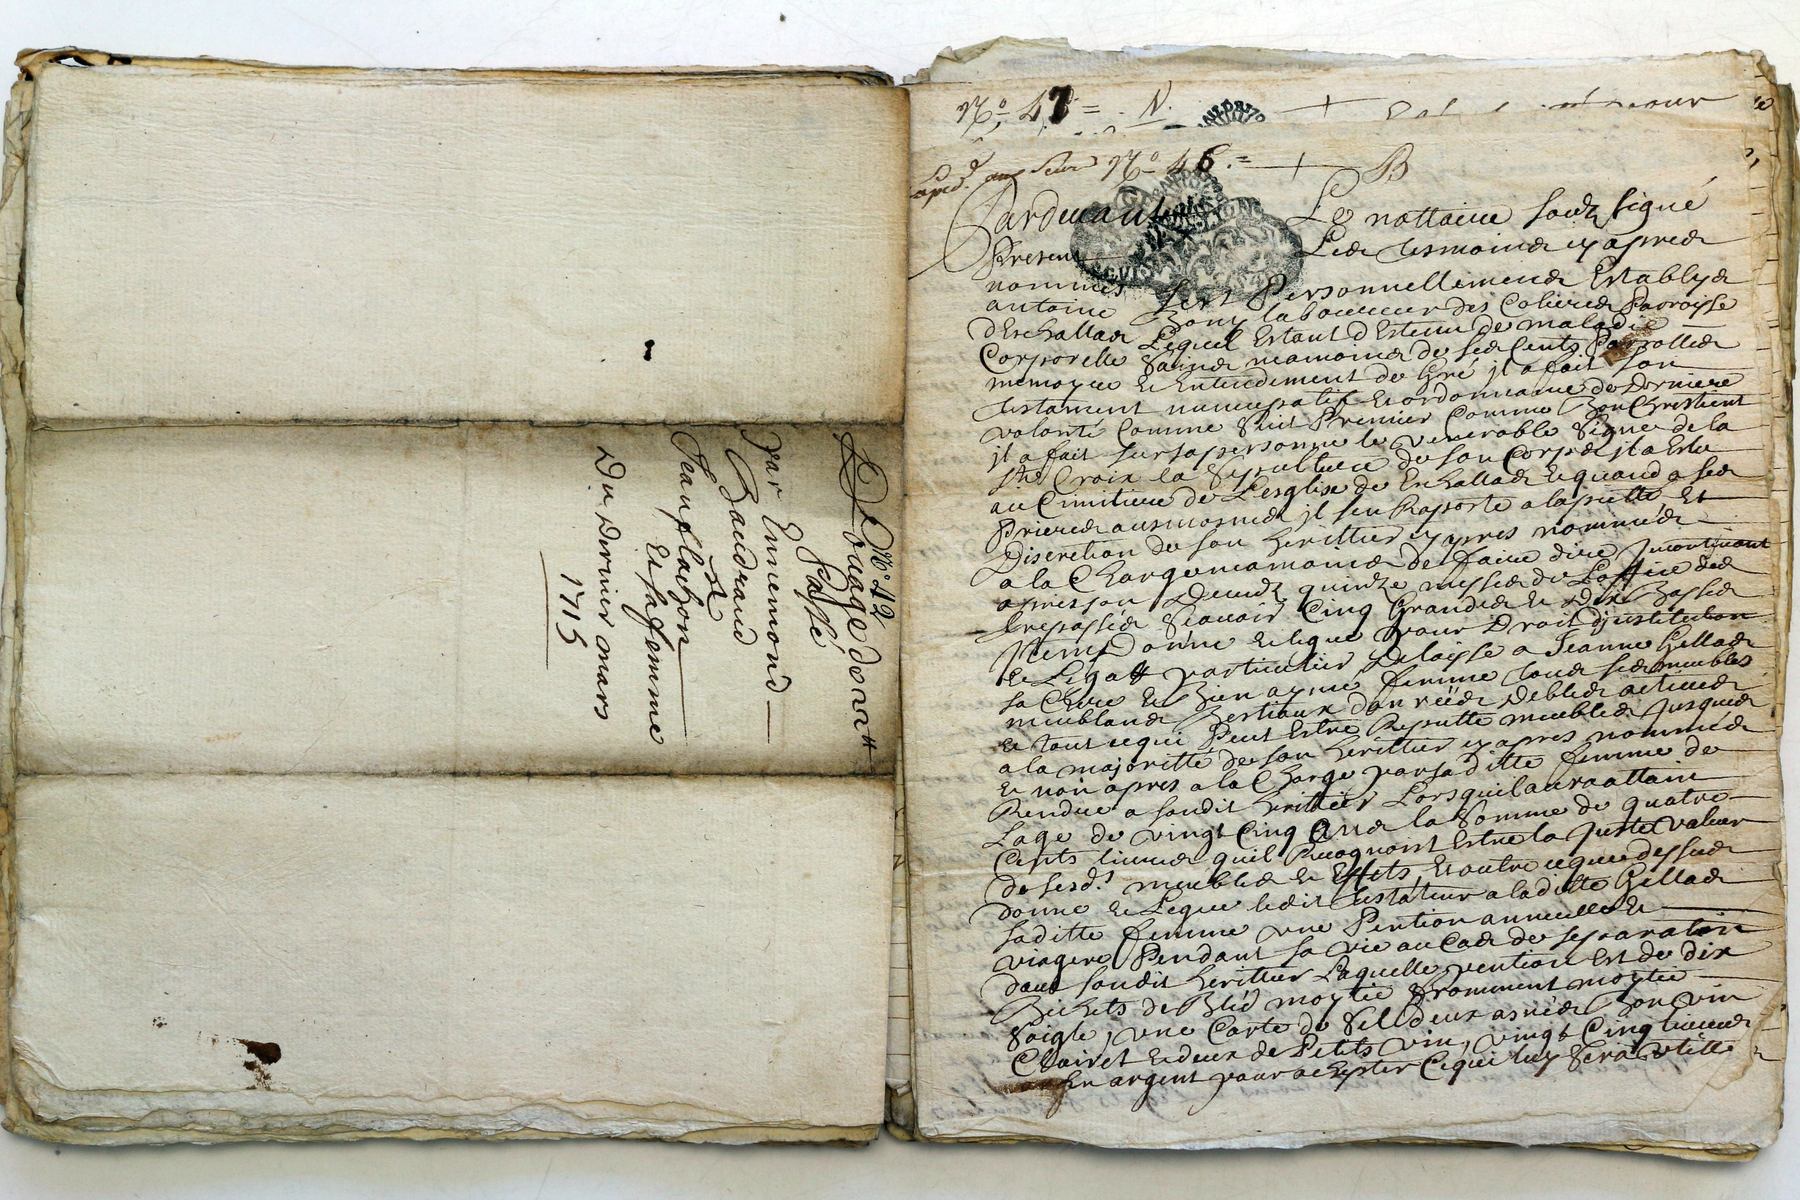 N.o 42
Louage de vi#
Passé
par Ennemond
Baudrand
a
Jean flachon
Et sa femme
Du Dernier mars
1715
N.o 47 = N.
N.o 46. = B
Pardevant Le nottaire souz signé
Present Les tesmoinds cy apres
nommes fert Personnellement Estably
antoine Bony laboureur des Colieres Parroisse
dEschallas Lequel Estant dEtenu de maladie
Corporelle Saine neamoins de ses Cents, Parrolles
memoyre Et Entendement de Gré il a fait son
testament nuncupatif Et ordonnance de Derniere
volonté Comme Suit Premier Comme Bon Chrestient
il a fait sur sa personne le venerable Signe de la
Ste Croix la Sepulture de son Corps il a Esleu
au Cimitiere de Lesglise de Eschallas Et quand a ses
Prieres ausmosnes il sen Raporte a la piette Et
Discretion de son heritier cy apres nommé
a la Charge neamoins de faire dire Incontinant
apres son Decedz quinze messes de Loffice des
trespassés Scavoir Cinq Grandes Et Dix Basses
Item Donne Et legue pour Droit dInstitution
Et Legatt particulier Delaysse a Jeanne Gillas
sa Chere Et Bien aymé femme tous ses meubles
meublans Bestiaux danrées Debtes actives
Et tout ce qui Peut Estre Reputte meubles Jusques
a la majoritte de son heritier cy apres nommé
Et non apres a la Charge par sa ditte femme de
Rendre a sondit heritier Lorsquil aura attain
Lage de vingt Cinq Ans la Somme de quatre
Cents livres quil Recognoist Estre la Juste valeur
de sesd.s meubles Et Effets, Et outre ce que dessus
donne Et Legue ledit testateur a laditte Gillas
saditte femme une Pention annuelle Et
viagere Pendant sa vie au Cas de separation
davec sondit heritier Laquelle pention Est de dix
Bichets de Bléd moytié fromment moytié
Soigle, une Carte de Sel deux asnés Bon vin
Clairet Et deux de Petits vin, vingt Cinq livres
en argent pour achepter Ce qui luy Sera utille